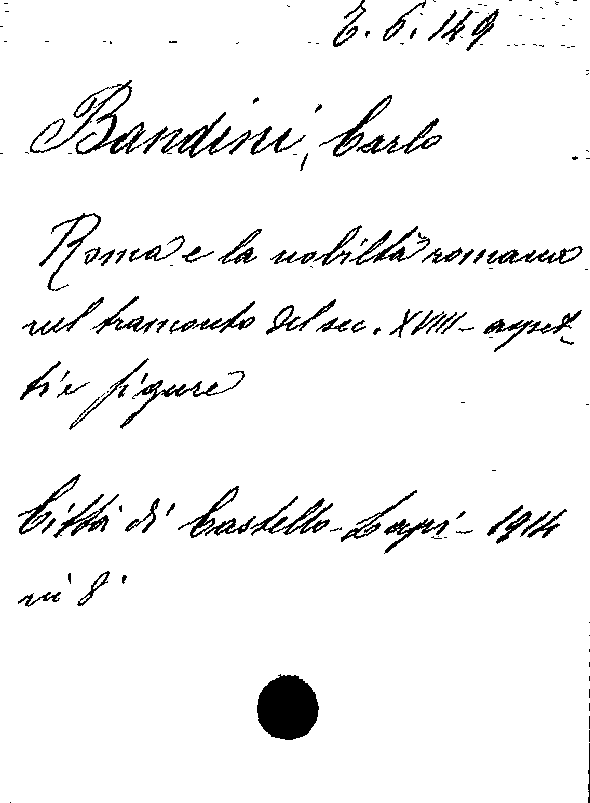 E. 6. 149
Bandini, Carlo
Roma e la nobiltà romana
nel tramonto del sec. XVIII - aspet-
ti e figure
Città di Castello - Lapi - 1914
in 8°